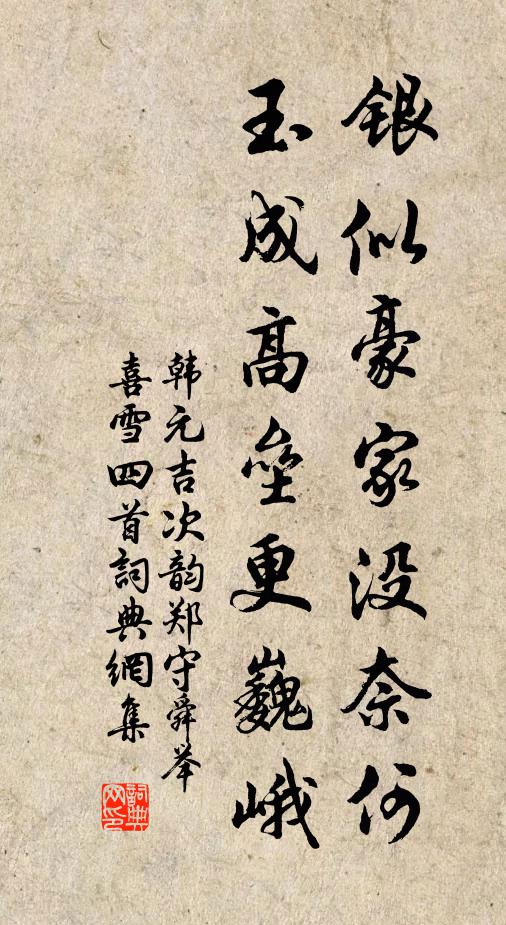 银似豪家没奈何
玉成高垒更巍峨
韩元吉次韵郑守舜举
喜雪四首詞典網集
詞典
网印